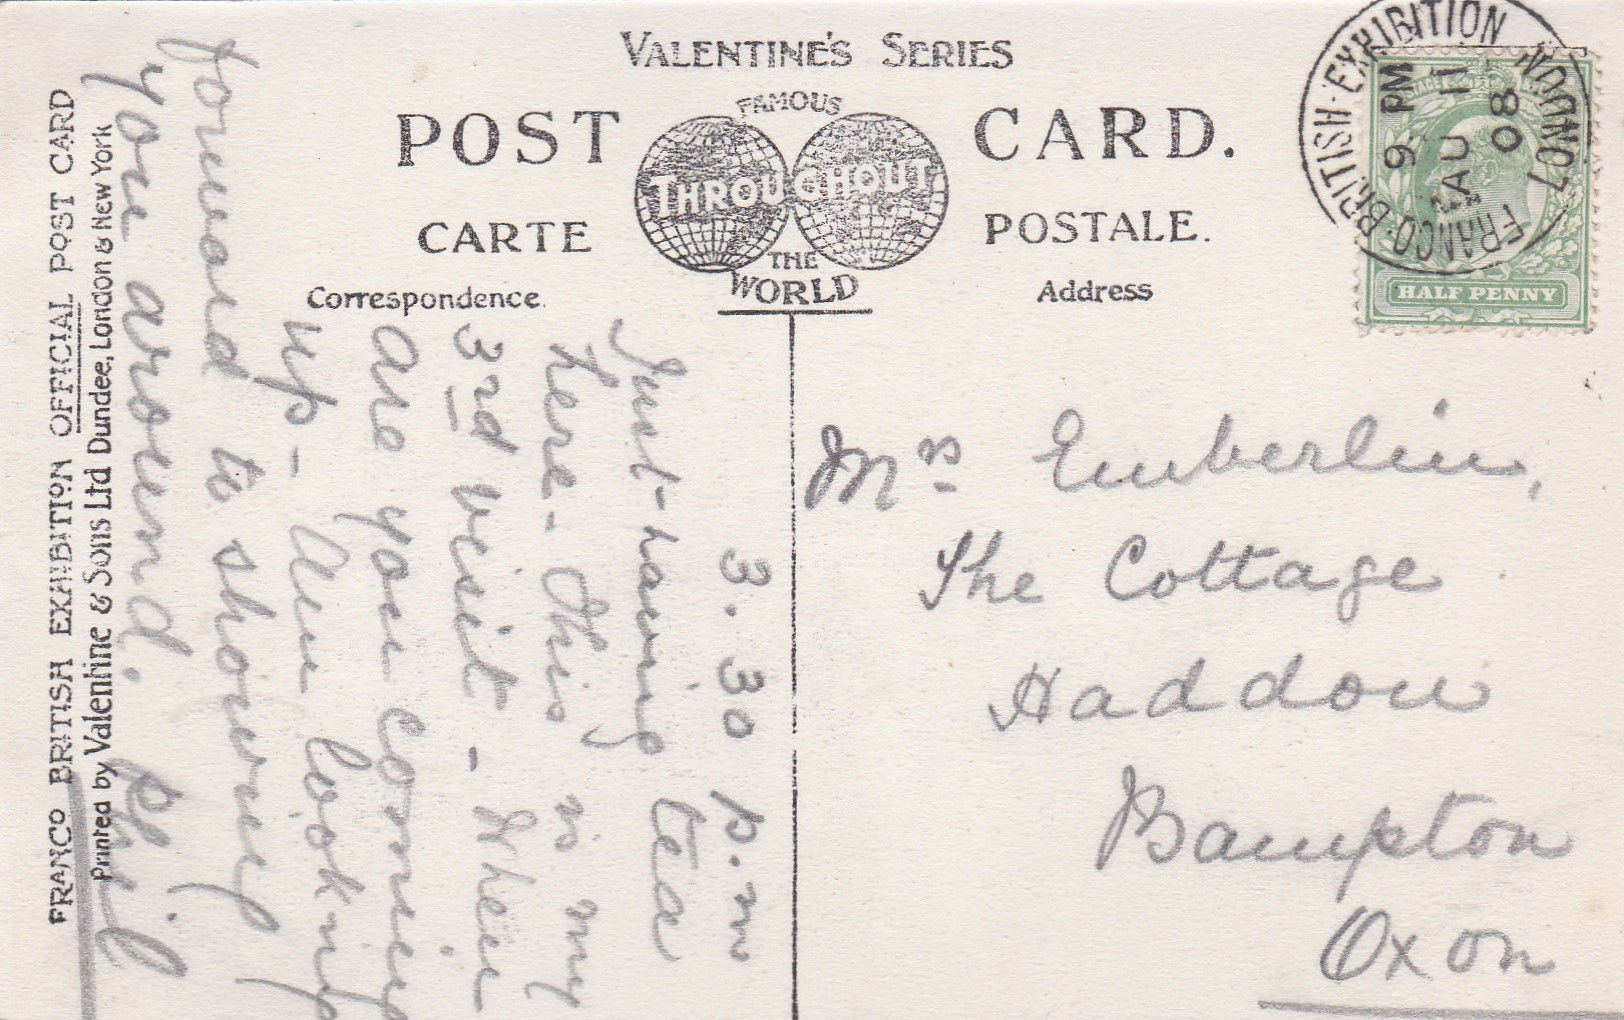 VALENTINE'S SERIES
POST CARD.
FAMOUS
THROUGHOUT
THE
WORLD
CARTE POSTALE.
Correspondence.
Address
FRANCO-BRITISH-EXHIBITION LONDON
9 PM
AU 11
08
HALF PENNY
FRANCO BRITISH EXHIBITION OFFICIAL POST CARD
Printed by Valentine & Sons Ltd Dundee, London & New York
3.30 p.m
Just having tea
here - This is my
3rd visit - When
are you coming
up - Am looking
forward to showing
you around. Phil
Mrs Emberlin,
The Cottage
Haddon
Bampton
Oxon